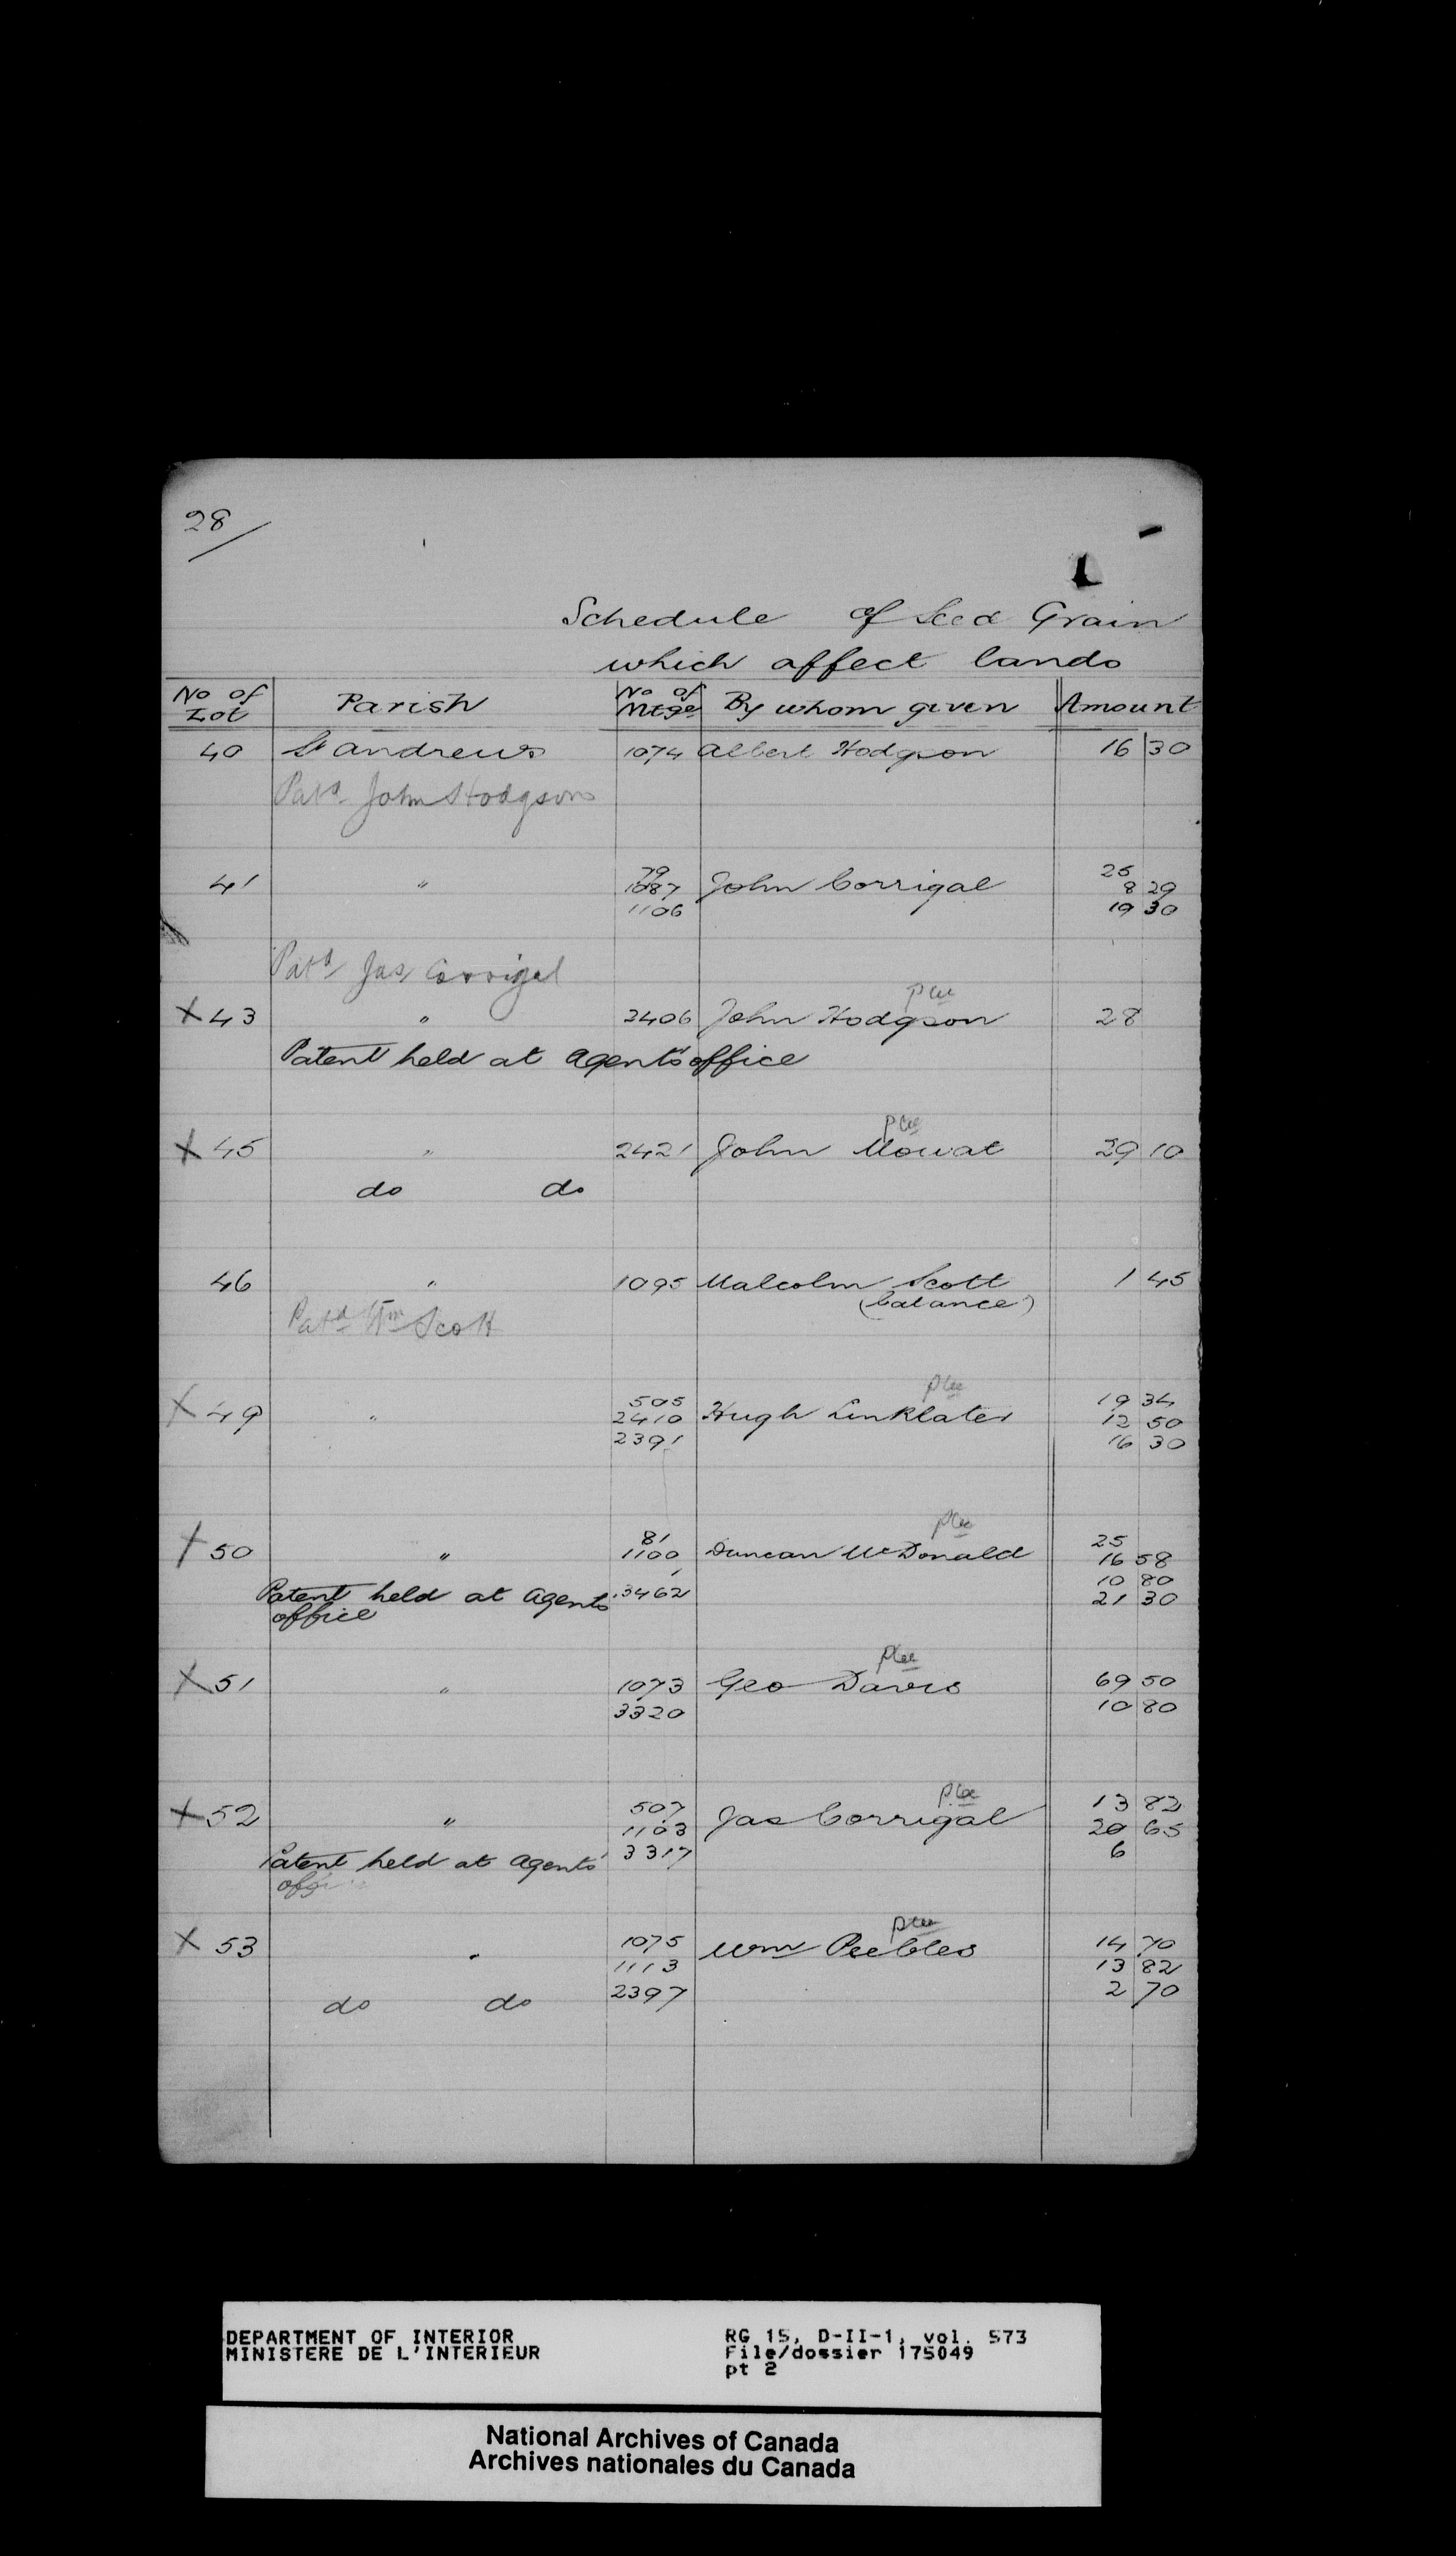 28/
Schedule of Seed Grain
which affect lands
No of Lot Parish No of Mtge By whom given Amount
40 St Andrews 1074 Albert Hodgson 16 30
Patd John Hodgson
79 25
41 " 1087 John Corrigal 8 29
1106 19 30
Patd Jas Corrigal
X 43 " 2406 John Hodgson 28
Patent held at Agents' office
X 45 " 2421 John Mowat 39 10
do do
46 " 1095 Malcolm Scott 1 45
(balance)
Patd Wm Scott
505 19 34
X 49 " 2410 Hugh Linklater 12 50
2391 16 30
81 25
X 50 " 1100 Duncan McDonald 16 58
10 80
Patent held at Agents 3462 21 30
office
X 51 " 1073 Geo Davis 69 50
3320 10 80
507 13 82
X 52 " 1103 Jas Corrigal 20 65
Patent held at Agents' 3317 6
office
X 53 " 1075 Wm Peebles 14 70
1113 13 82
do do 2397 2 70
DEPARTMENT OF INTERIOR
MINISTERE DE L'INTERIEUR
RG 15, D-II-1, vol. 573
File/dossier 175049
pt 2
National Archives of Canada
Archives nationales du Canada